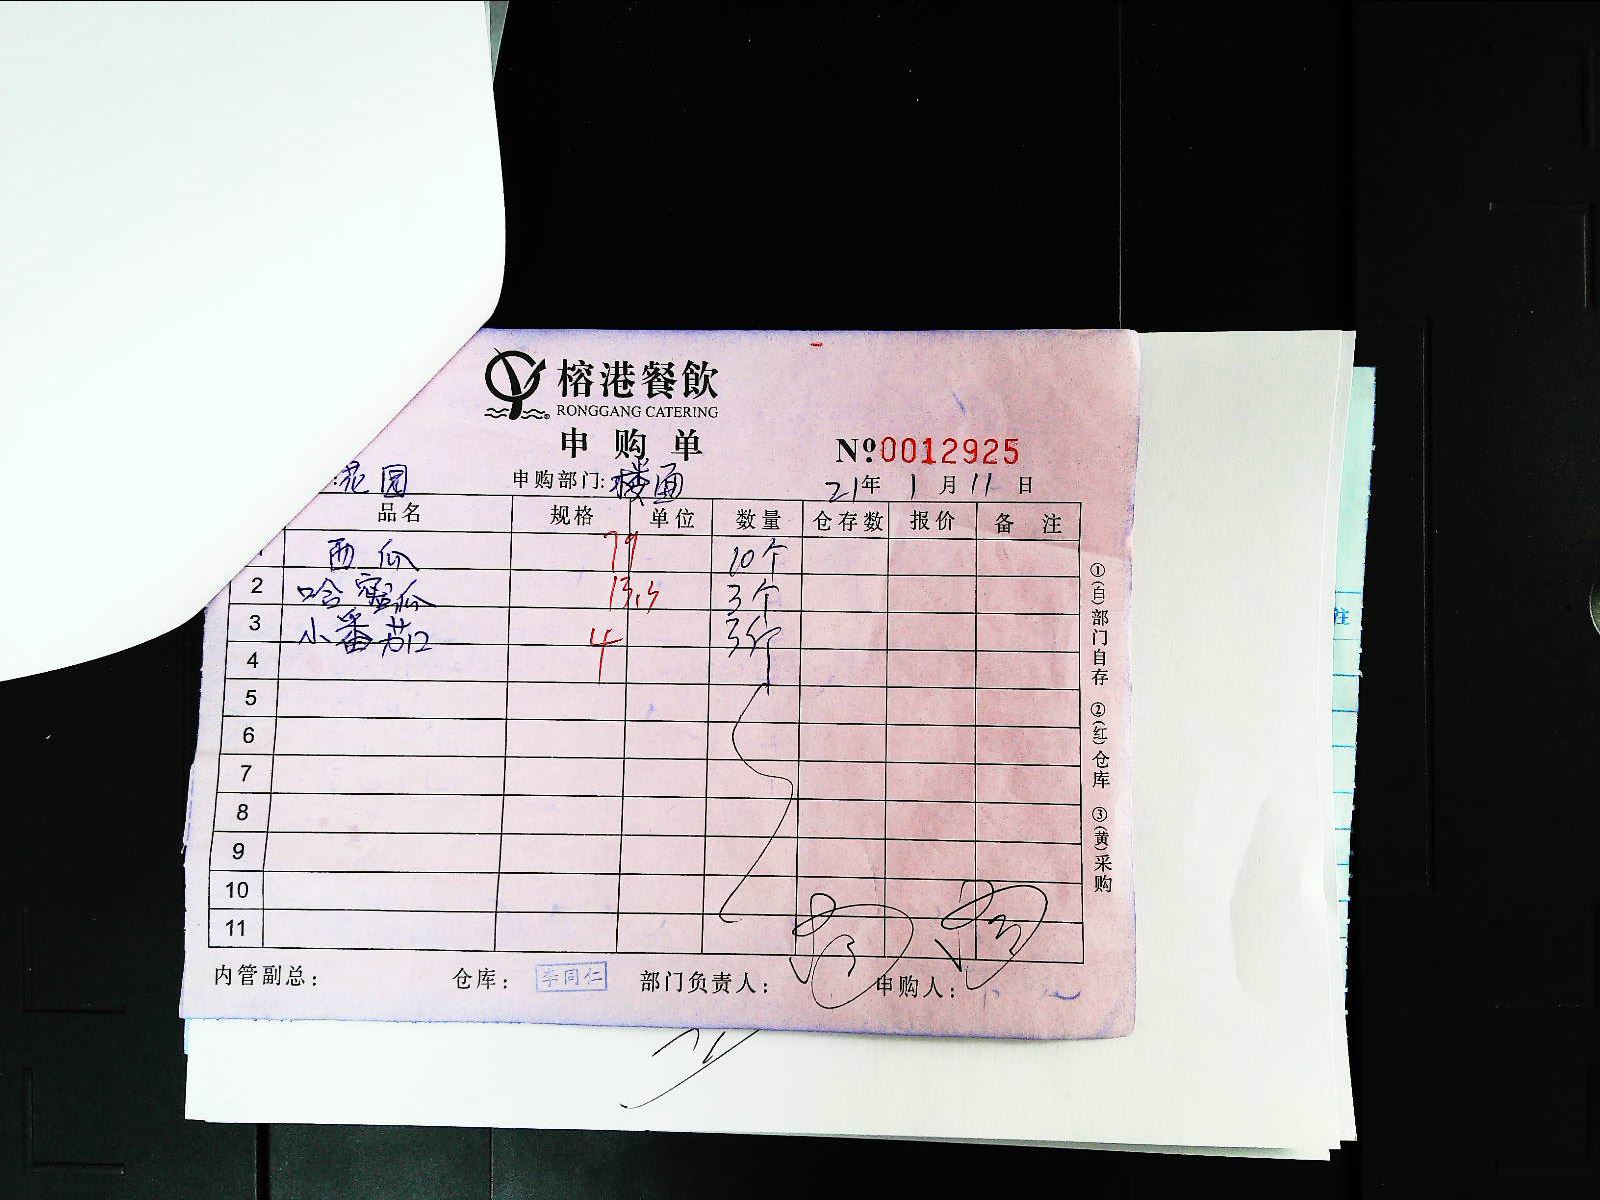 榕港餐飲
RONGGANG CATERING
申购单
№0012925
:花园 申购部门:楼面 21年1月11日
品名 规格 单位 数量 仓存数 报价 备注
1 西瓜 79 10个
2 哈蜜瓜 13.5 3个
3 小番茄 4 3斤
4
5
6
7
8
9
10
11
内管副总: 仓库: 李同仁 部门负责人: 申购人:
①(白)部门自存 ②(红)仓库 ③(黄)采购
注